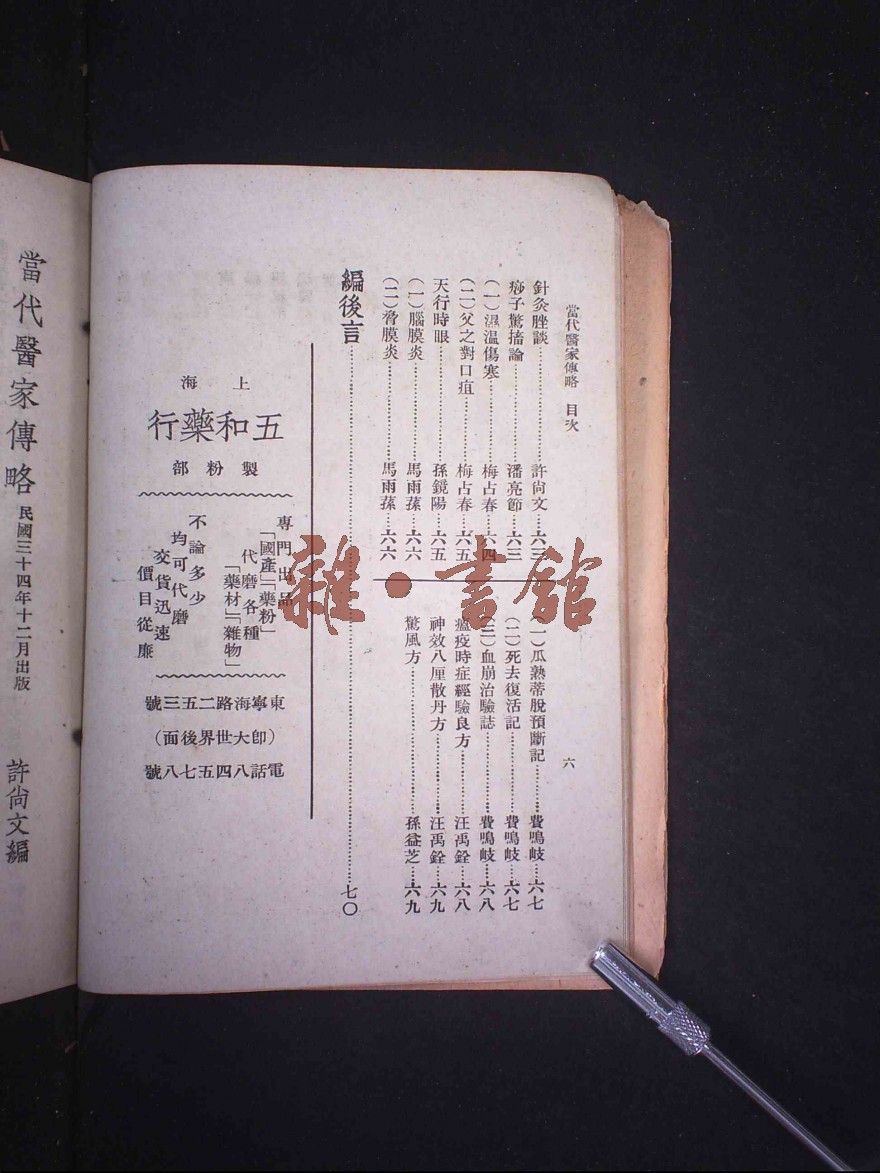 當代醫家傳略 目次
六
針灸脞談……許尚文…六三
痧子驚搐論……潘亮節…六三
(一)濕溫傷寒……梅占春…六四
(二)父之對口疽……梅占春…六五
天行時眼……孫鏡陽…六五
(一)腦膜炎……馬雨蓀…六六
(二)脅膜炎……馬雨蓀…六六
(一)瓜熟蒂脫預斷記……費鳴岐…六七
(二)死去復活記……費鳴岐…六七
(三)血崩治驗誌……費鳴岐…六八
瘟疫時症經驗良方……汪禹銓…六八
神效八厘散丹方……汪禹銓…六九
驚風方……孫益芝…六九
編後言……七〇
上海
五和藥行
製粉部
專門出品
「國產」「藥粉」
代磨各種
「藥材」「雜物」
不論多少
均可代磨
交貨迅速
價目從廉
東寧海路二五三號
(即大世界後面)
電話八四五七八號
當代醫家傳略 民國三十四年十二月出版 許尚文編
雜·書館